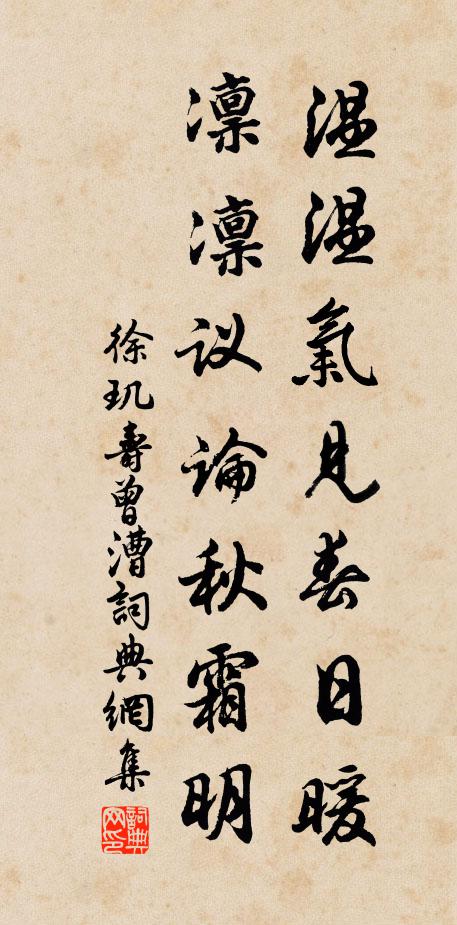 温温氣見春日暖
凛凛议論秋霜明
徐玑壽曾漕詞典網集
詞典网印